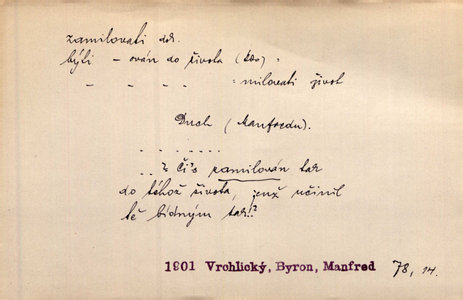 zamilovati dok.
býti - ován do života (kdo) =
- - - - = milovati život
Duch (Manfredu).
. . . . . .
. . ? Či's zamilován tak
do téhož života, jenž učinil
tě bídným tak!?
1901 Vrchlický, Byron, Manfred 78, 14.